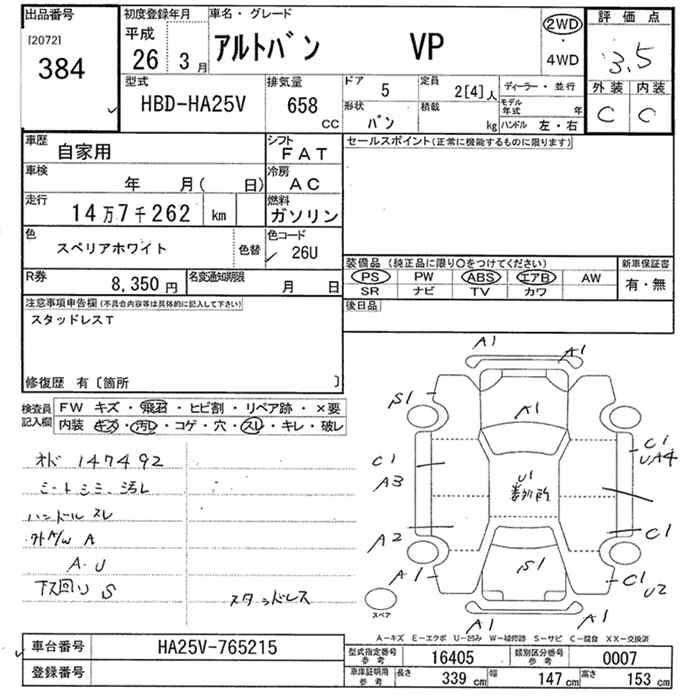 出品番号
[2072]
384
初度登録年月
平成
26 3月
車名・グレード
アルトバン VP
2WD
・
4WD
評価点
3.5
外装 内装
C C
型式
HBD-HA25V
排気量
658
CC
ドア 5
定員 2[4]人
ディーラー・並行
形状 バン
積載 kg
モデル年式 年
ハンドル 左・右
車歴
自家用
シフト
FAT
セールスポイント(正常に機能するものに限ります)
車検
年 月( 日)
冷房
AC
走行
14万7千262 km
燃料
ガソリン
色
スペリアホワイト
色替
色コード
26U
装備品(純正品に限り〇をつけてください)
新車保証書
PS PW ABS エアB AW
有・無
SR ナビ TV カワ
R券
8,350円
名変通知期限
月 日
後日品
注意事項申告欄(不具合内容等は具体的に記入して下さい)
スタッドレスT
修復歴 有〔箇所 〕
検査員
記入欄
FW キズ・飛石・ヒビ割・リペア跡・×要
内装 キズ・汚レ・コゲ・穴・スレ・キレ・破レ
オド 147492
シートシミ、汚レ
ハンドルスレ
外A/W A
A.U
下ス回り S
スタッドレス
A1
A1
S1
A1
C1
A3
C1
UA4
U1
A2
C1
A1
S1
C1
U2
A1
A1
スペア
A―キズ E―エクボ U―凹み W―補修跡 S―サビ C―腐食 XX―交換済
車台番号
HA25V-765215
登録番号
型式指定番号
参考
16405
類別区分番号
参考
0007
車庫証明用
参考
長さ 339 cm
幅 147 cm
高さ 153 cm